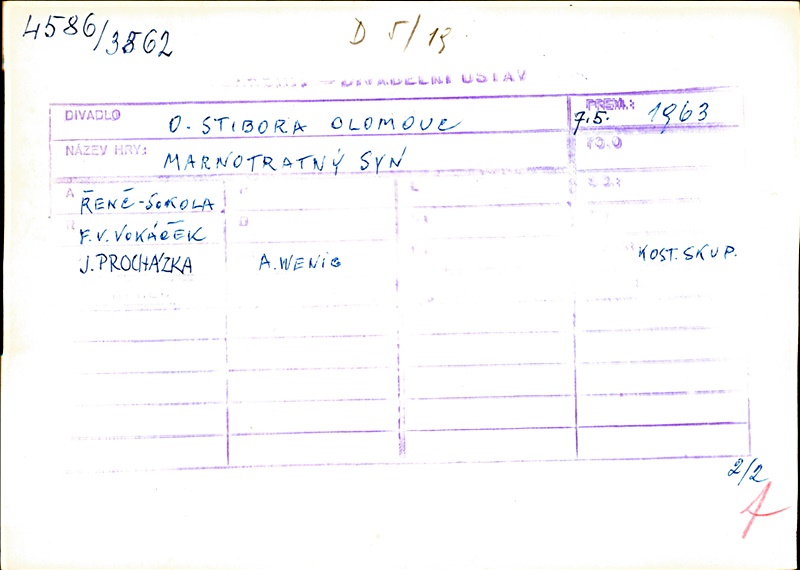 4586/3862
D 5/19
DIVADELNÍ ÚSTAV
DIVADLO O. STIBORA OLOMOUC
PREM.: 7.5. 1963
NÁZEV HRY: MARNOTRATNÝ SYN
A ŘENČ-SOKOLA
F.V. VOKÁČEK
J. PROCHÁZKA
A. WENIG
KOST. SKUP.
2/2